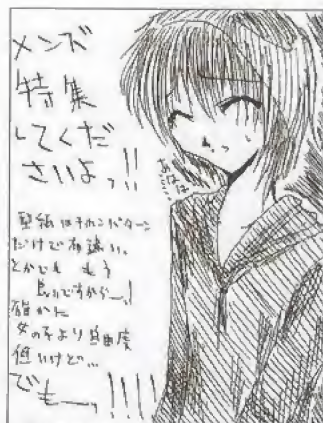 メンズ
特集
してくだ
さいよっ!!
あはは
壁紙は
だけで
とかでも もう
良いですから〜!
確かに
女の子より自由度
低いけど…
でも〜っ!!!!